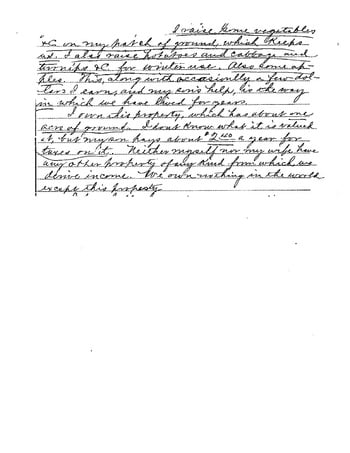 I raise some vegetables
&C on my patch of ground, which keeps
us. I also raise potatoes and cabbage and
turnips &C for winter use. Also some ap-
ples. This, along with occasionly a few dol-
lars I earn, and my son's help, is the way
in which we have lived for years.
I own this property, which has about one
acre of ground. I dont know what it is valued
at, but my son pays about $2.00 a year for
taxes on it. Neither myself nor my wife have
any other property of any kind from which we
derive income. We own nothing in the world
except this property